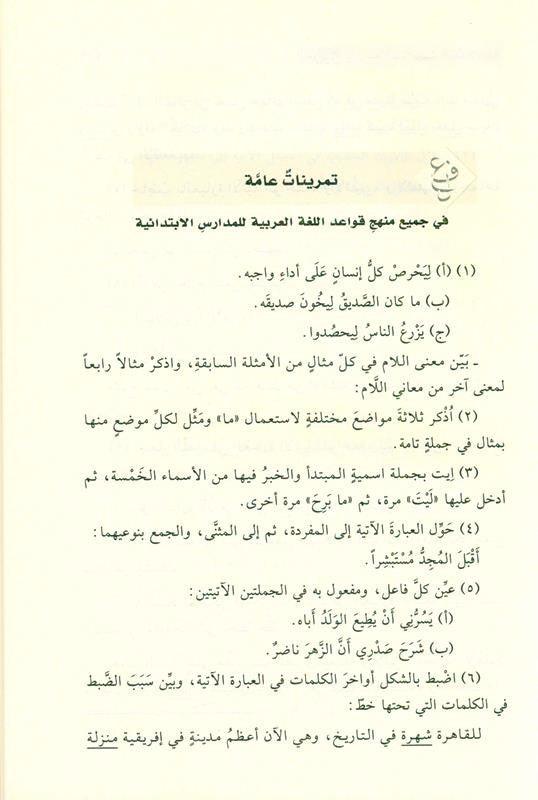 تمريناتٌ عامَّة
في جميع منهج قواعد اللغة العربية للمدارسِ الابتدائية
(١) (أ) لِيَحْرصْ كلُّ إنسانٍ عَلَى أداءِ واجبه.
(ب) ما كان الصَّديقُ لِيخُونَ صديقَه.
(ج) يَزْرعُ الناسُ لِيحصُدوا.
ـ بَيِّن معنى اللام في كلّ مثالٍ من الأمثلة السابقةِ، واذكرْ مثالاً رابعاً
لمعنى آخر من معاني اللَّام:
(٢) اُذْكر ثلاثةَ مواضعَ مختلفةٍ لاستعمال «ما» ومَثِّل لكلِّ موضعٍ منها
بمثال في جملةٍ تامة.
(٣) اِيت بجملة اسميةٍ المبتدأ والخبرُ فيها من الأسماء الخَمْسة، ثم
أدخل عليها «لَيْتَ» مرة، ثم «ما بَرِحَ» مرة أخرى.
(٤) حَوِّل العبارةَ الآتية إلى المفردة، ثم إلى المثنَّى، والجمع بنوعيهما:
أَقْبَلَ المُجِدُّ مُسْتَبْشِراً.
(٥) عيِّن كلَّ فاعل، ومفعول به في الجملتين الآتيتين:
(أ) يَسُرُّنِي أَنْ يُطِيعَ الوَلَدُ أَباه.
(ب) شَرَحَ صَدْرِي أَنَّ الزَّهرَ ناضرٌ.
(٦) اضْبط بالشكل أواخرَ الكلمات في العبارة الآتية، وبيِّن سَبَبَ الضَّبط
في الكلمات التي تحتها خطّ:
للقاهرة شهرة في التاريخ، وهي الآن أعظمُ مدينةٍ في إفريقية منزلة